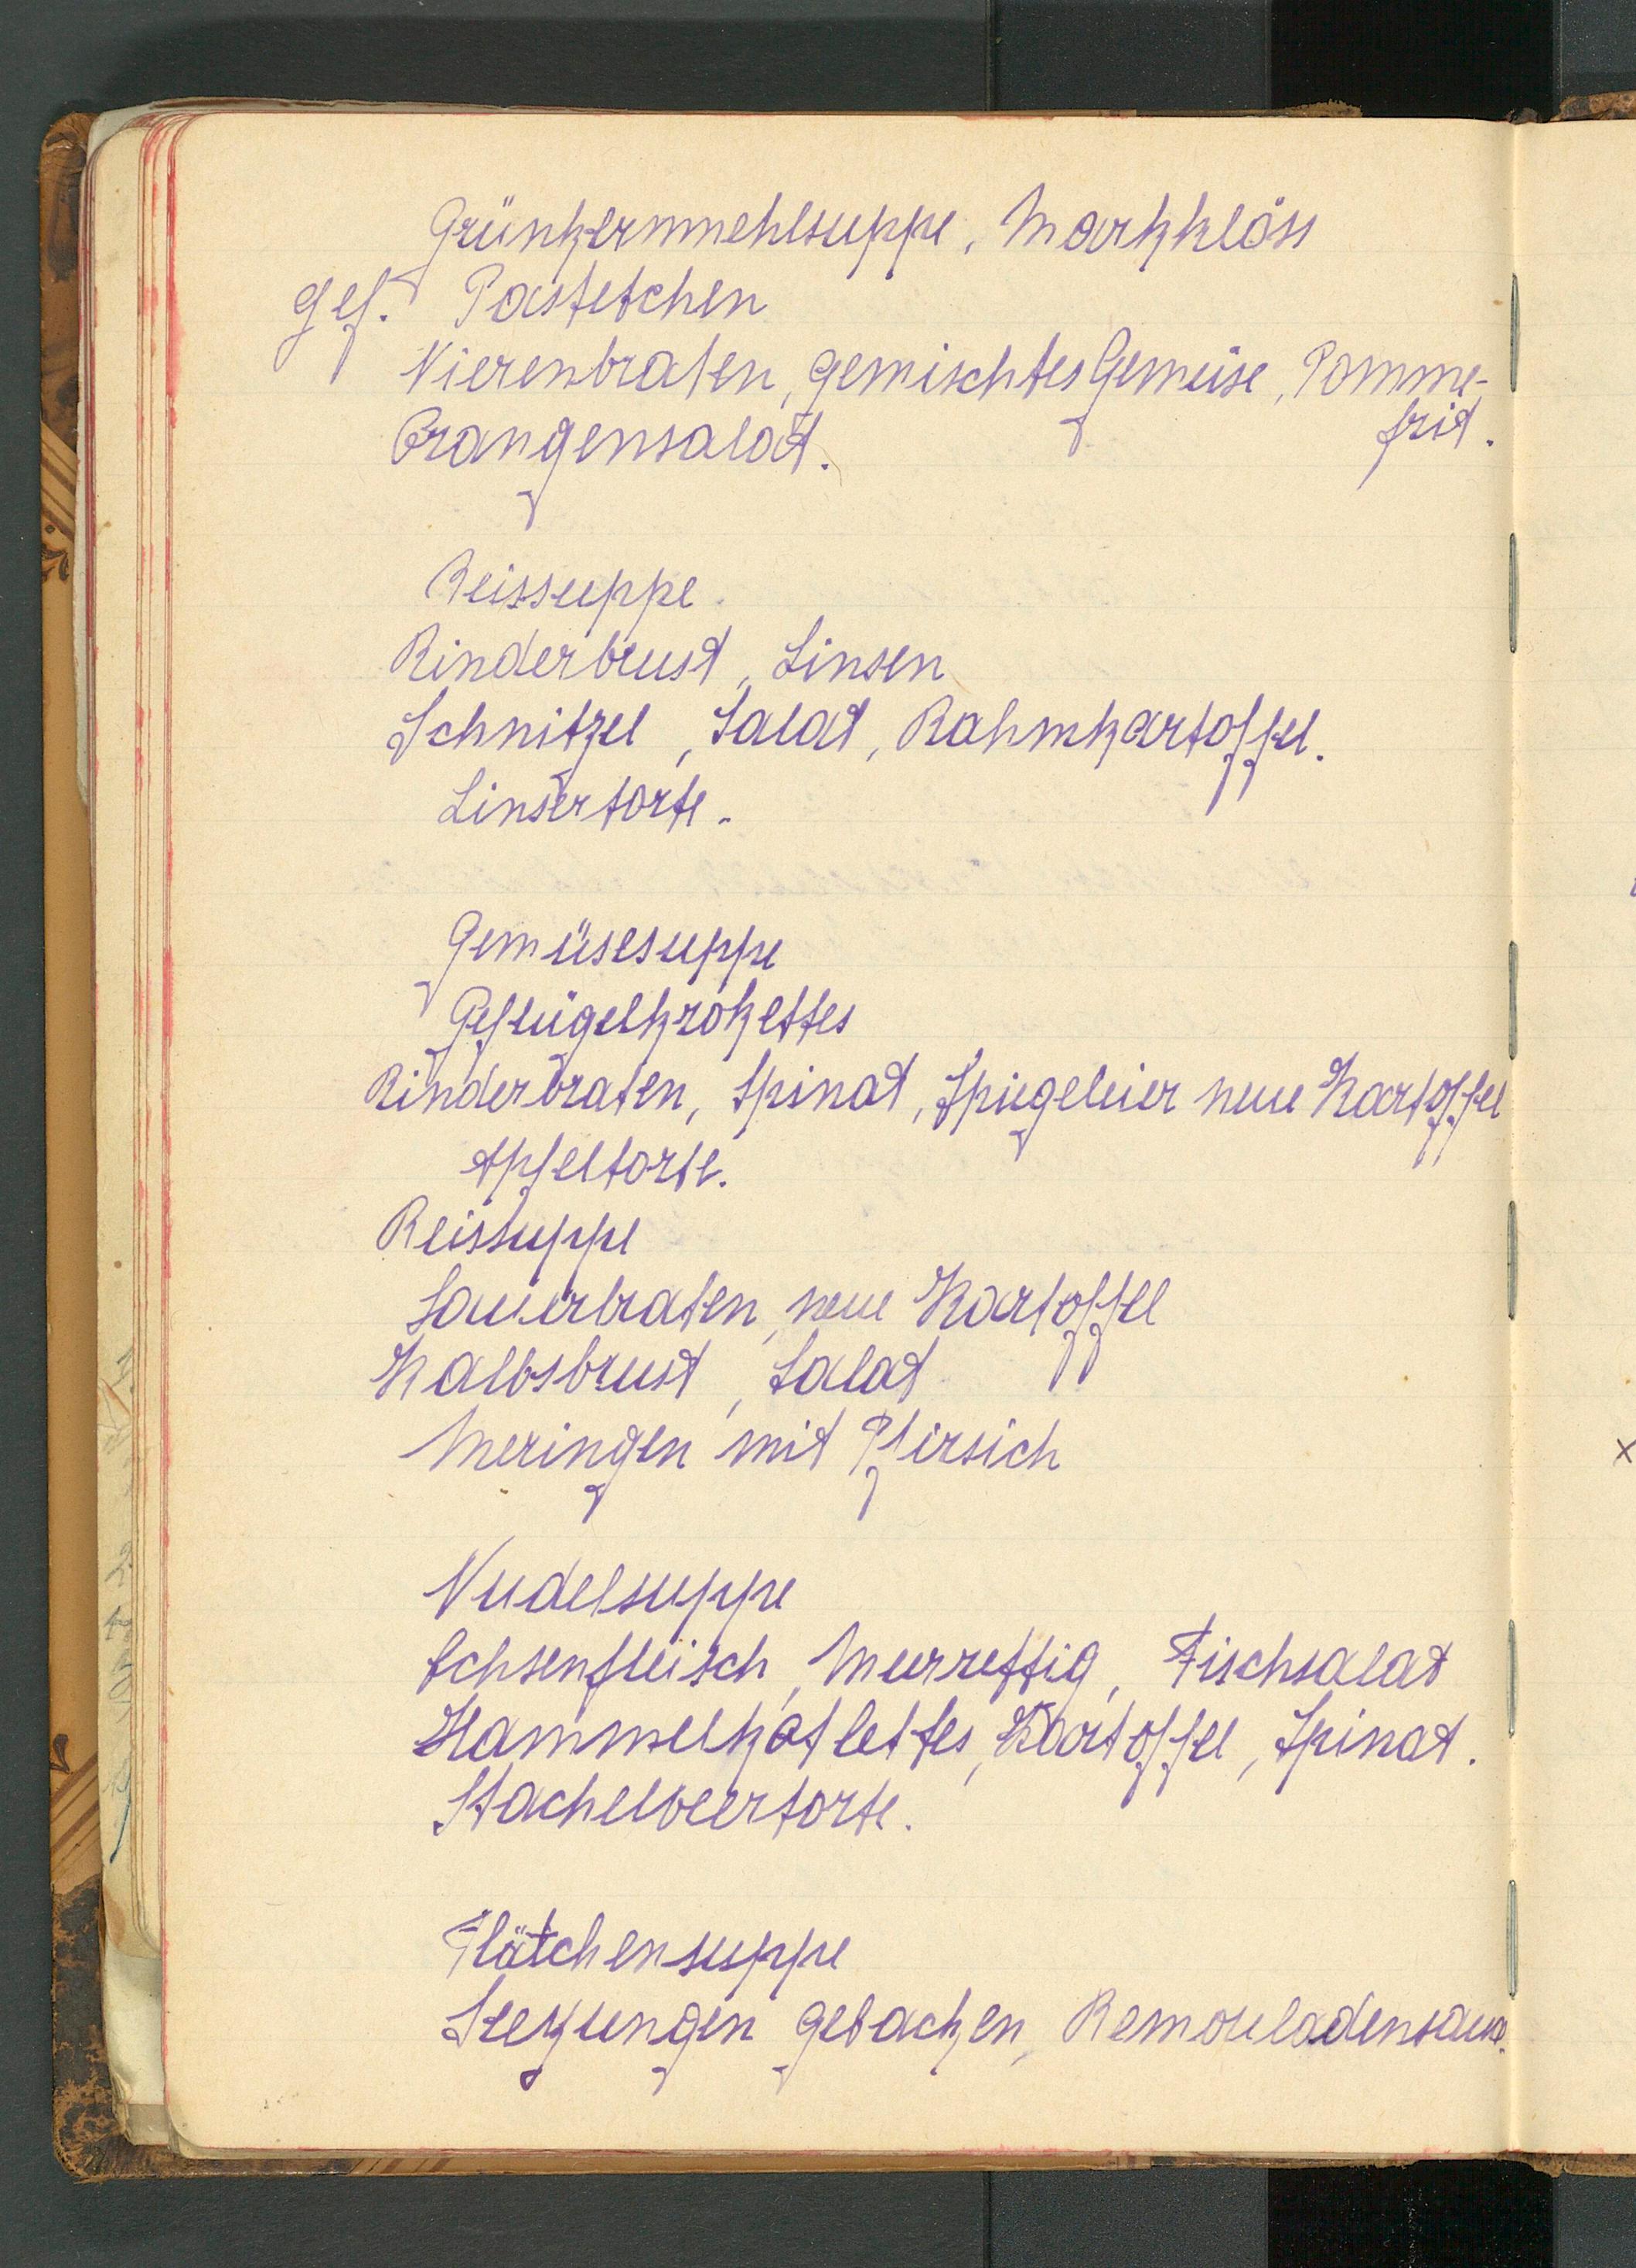 Grünkernmehlsuppe, Markklöss
gef. Pastetchen
Nierenbraten, gemischtes Gemüse, Pomme-
frit.
Orangensalat.
Reissuppe.
Rinderbrust, Linsen
Schnitzel, Salat, Rahmkartoffel.
Linsertorte.
Gemüsesuppe
Geflügelkrokettes
Rinderbraten, Spinat, Spiegeleier neue Kartoffel
Apfeltorte.
Reissuppe
Sauerbraten, neue Kartoffel
Kalbsbrust, Salat
Meringen mit Pfirsich
Nudelsuppe
Ochsenfleisch, Meerrettig, Fischsalat
Hammelkotlettes, Kartoffel, Spinat.
Stachelbeertorte.
Flätchensuppe
Seezungen gebacken, Remouladensauce.
x